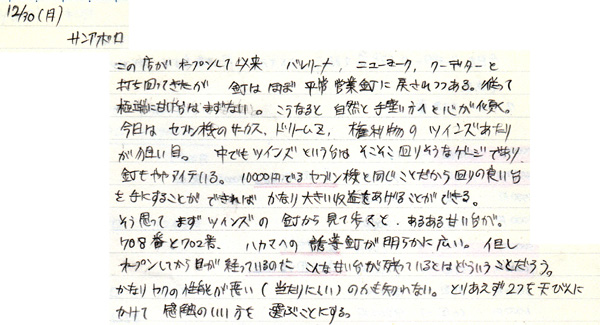 12/30(月)
サンアポロ
この店がオープンして以来 バレリーナ、ニューヨーク、クーデターと
打ち回ってきたが 釘はほぼ平常営業釘に戻されつつある。従って
極端な甘い台はまずない。こうなると自然と手堅い方へと心が傾く。
今日はセブン機のサーカス、ドリームZ、権利物のツインズあたり
が狙い目。中でもツインズという台はそこそこ回りそうなゲージであり
釘もややアイている。10000円でるセブン機と同じことだから回りの良い台
を手にすることができればかなり大きい収益をあげることができる。
そう思ってまずツインズの釘から見て歩くと、あるある甘い台が。
708番と702番、ハカマへの誘導釘が明らかに広い。但し
オープンしてから日が経っているのにこんな甘い台が残っているとはどういうことだろう。
かなりヤクの性能が悪い(当たりにくい)のかも知れない。とりあえず2つを天びんに
かけて感触のいい方を選ぶことにする。